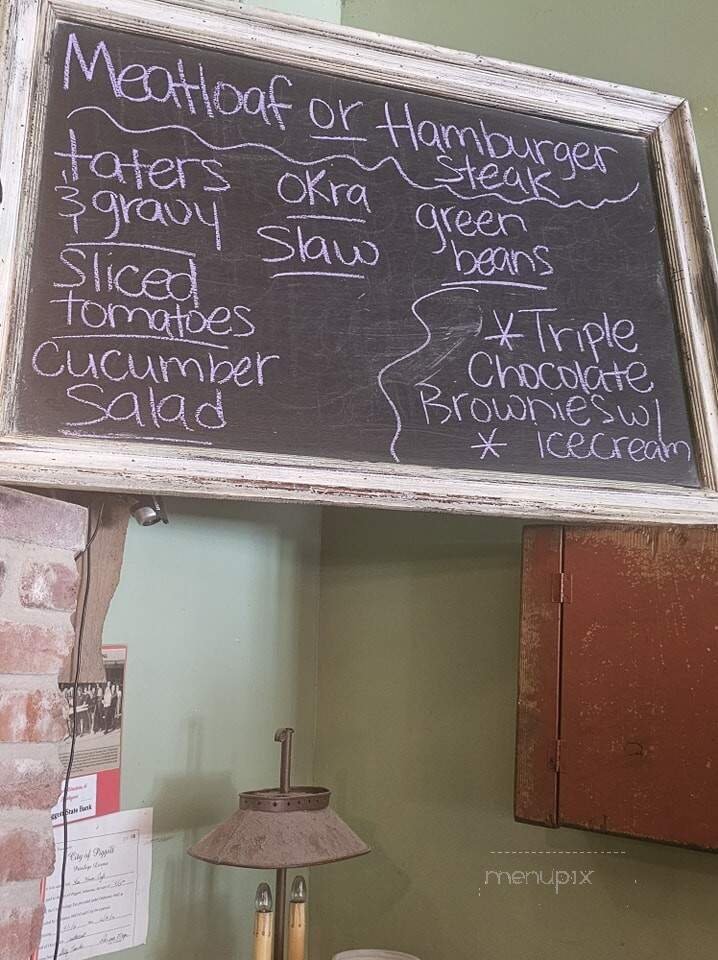 Meatloaf or Hamburger
steak
taters
& gravy
okra
slaw
green
beans
Sliced
tomatoes
Cucumber
Salad
*Triple
Chocolate
Brownies w/
* Icecream
State Bank
City of Piggott
Privilege License
menupix